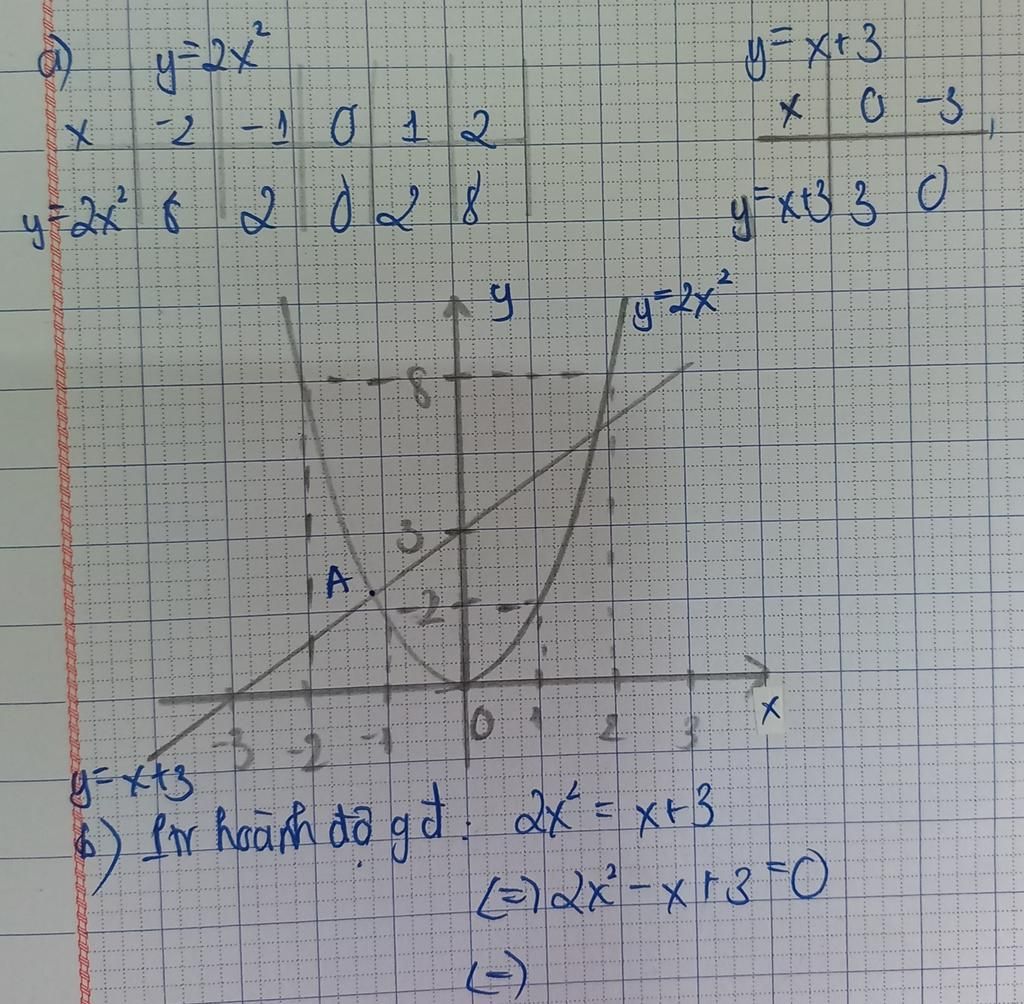 a) y=2x² y=x+3
x -2 -1 0 1 2 x 0 -3
y=2x² 8 2 0 2 8 y=x+3 3 0
y y=2x²
8
3
A
2
-3 -2 -1 0 1 2 3 x
y=x+3
b) Pr hoành độ gđ: 2x² = x+3
(=) 2x² - x + 3 = 0
(=)